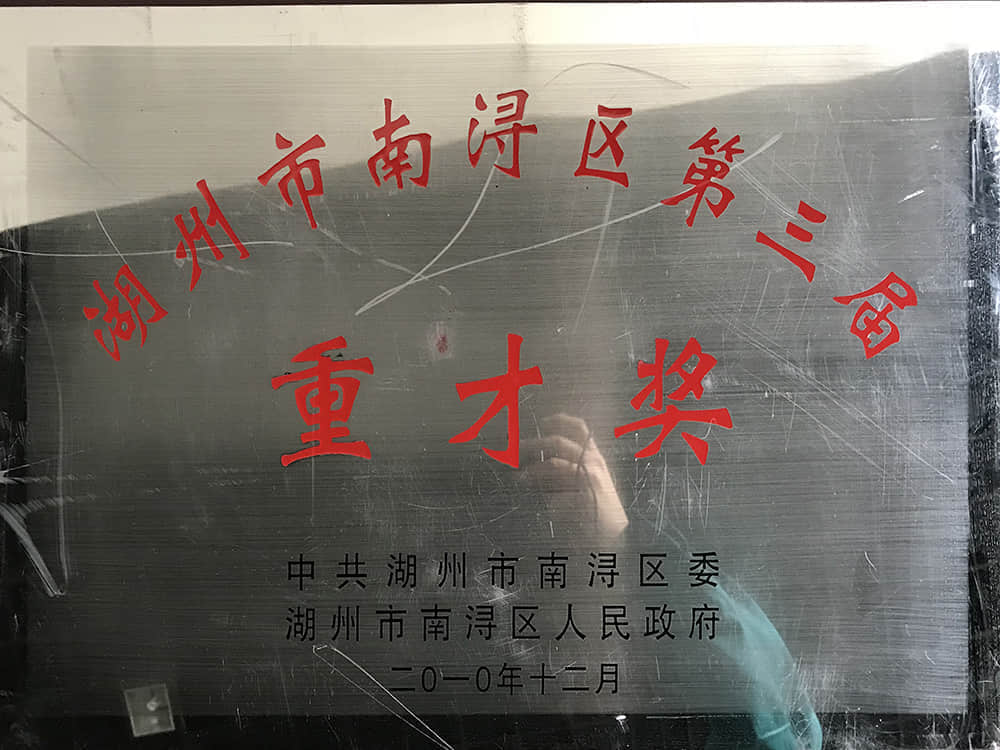 湖州市南浔区第三届
重才奖
中共湖州市南浔区委
湖州市南浔区人民政府
二0一0年十二月